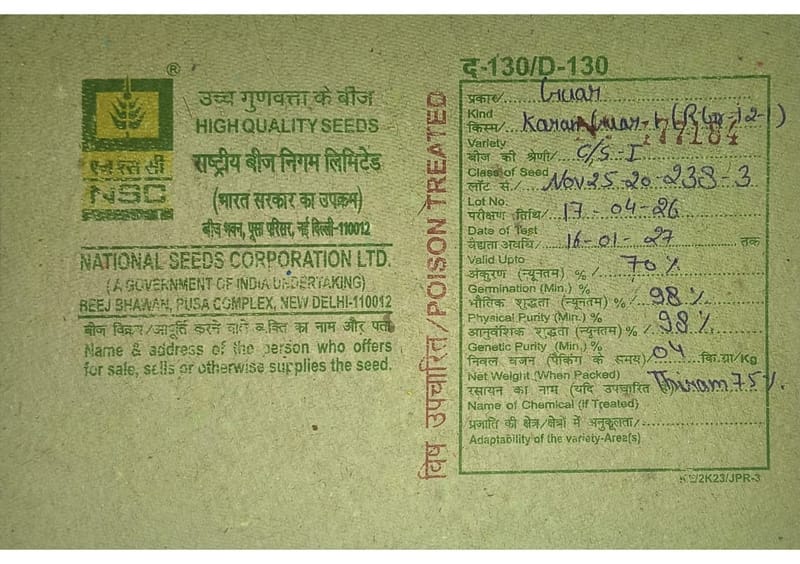 ®
एन एस सी
NSC
उच्च गुणवत्ता के बीज
HIGH QUALITY SEEDS
राष्ट्रीय बीज निगम लिमिटेड
(भारत सरकार का उपक्रम)
बीज भवन, पूसा परिसर, नई दिल्ली-110012
NATIONAL SEEDS CORPORATION LTD.
(A GOVERNMENT OF INDIA UNDERTAKING)
BEEJ BHAWAN, PUSA COMPLEX, NEW DELHI-110012
बीज विक्रय/आपूर्ति करने वाले व्यक्ति का नाम और पता
Name & address of the person who offers
for sale, sells or otherwise supplies the seed.
विष उपचारित/POISON TREATED
द-130/D-130
प्रकार/ Guar
Kind
किस्म/ Karan Guar-1 177184
Variety
बीज की श्रेणी/ C/S-I
Class of Seed
लॉट सं./ Nov25-20-238-3
Lot No.
परीक्षण तिथि/ 17-04-26
Date of Test
वैधता अवधि/ 16-01-27 तक
Valid Upto
अंकुरण (न्यूनतम) %/ 70%
Germination (Min.) %
भौतिक शुद्धता (न्यूनतम) %/ 98%
Physical Purity (Min.) %
आनुवंशिक शुद्धता (न्यूनतम) %/ 98%
Genetic Purity (Min.) %
निवल वजन (पैकिंग के समय) 04 कि.ग्रा/Kg
Net Weight (When Packed)
रसायन का नाम (यदि उपचारित Thiram 75%
Name of Chemical (If Treated)
प्रजाति की क्षेत्र/क्षेत्रों में अनुकूलता/
Adaptability of the variety-Area(s)
/2K23/JPR-3